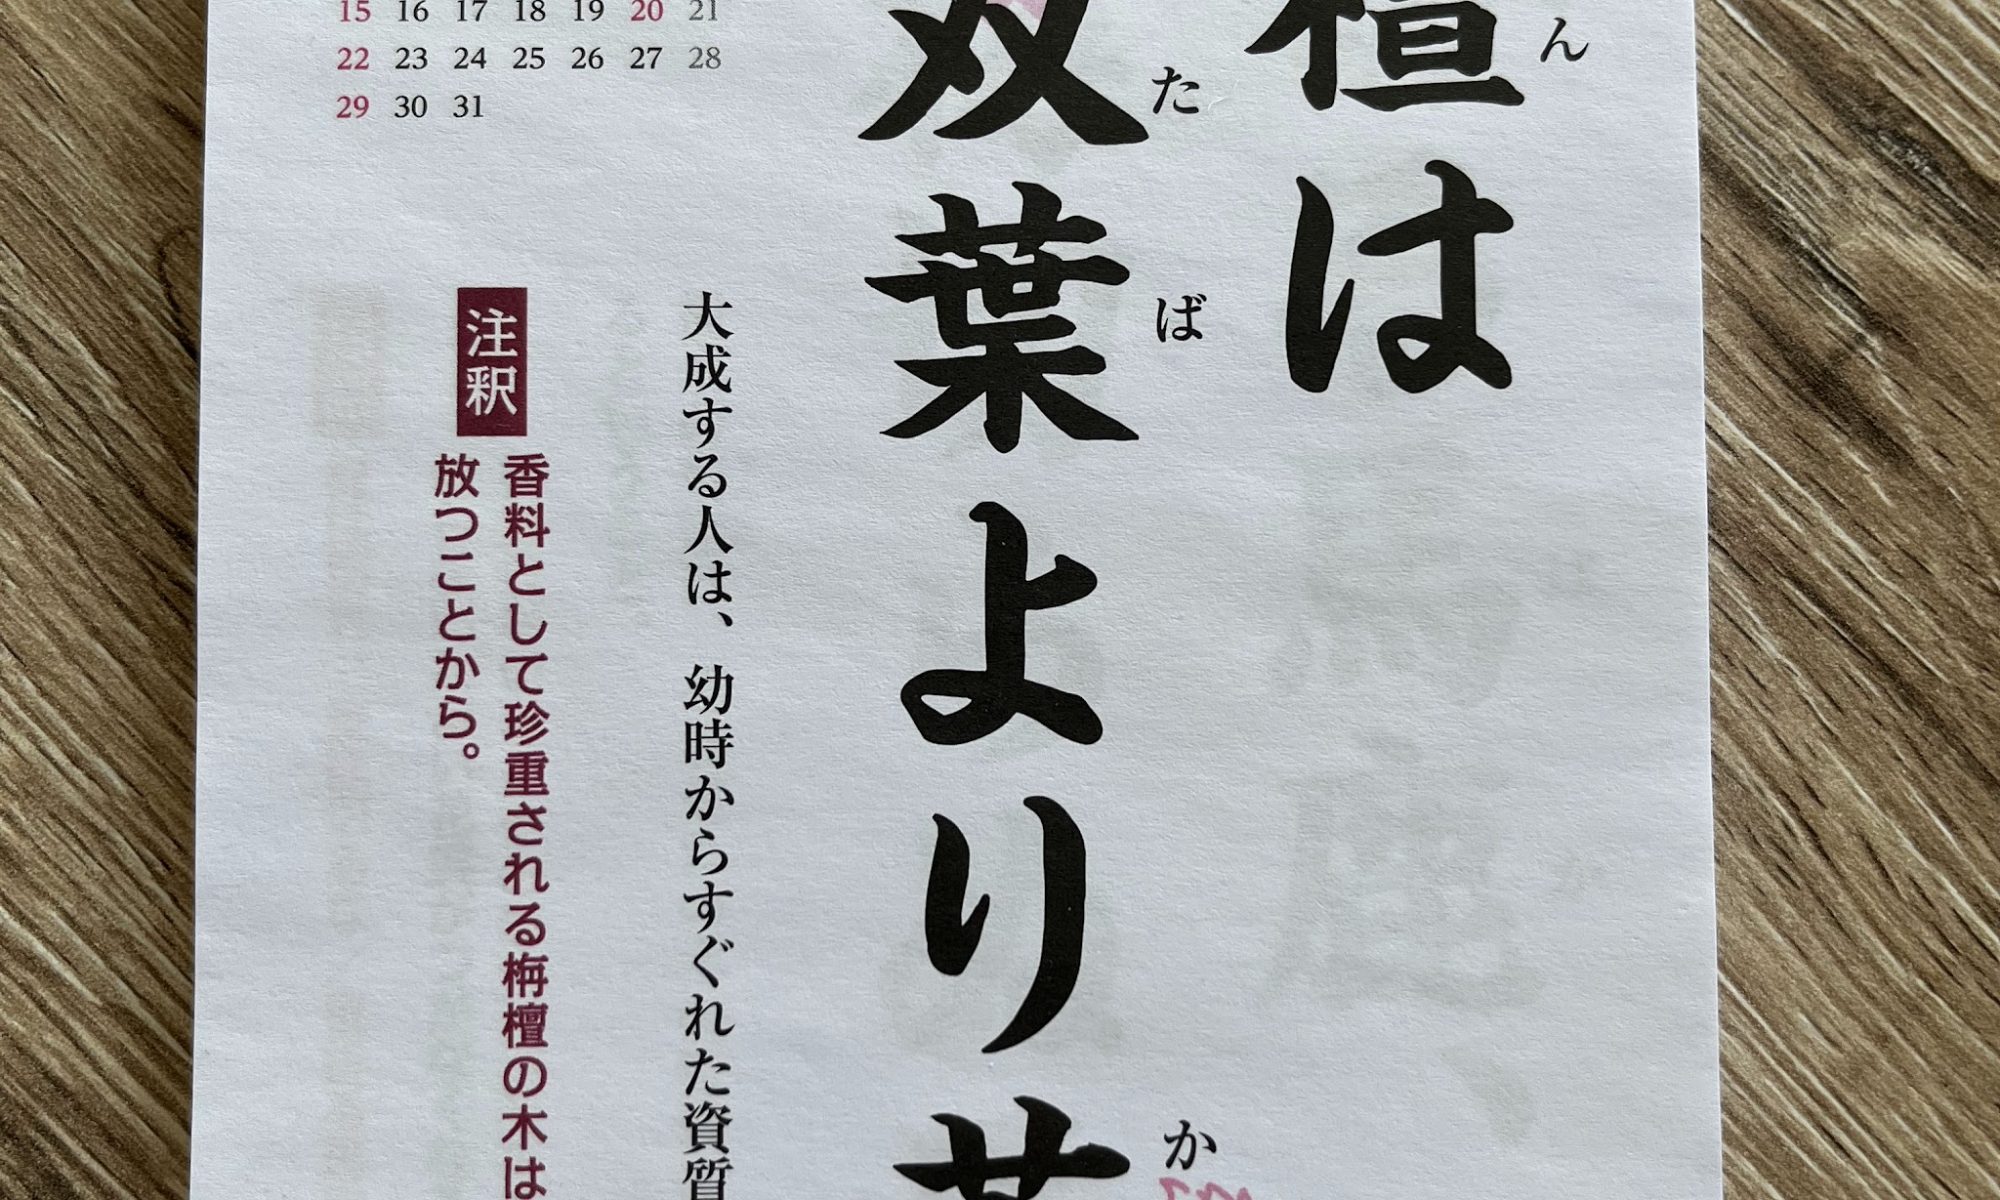 15 16 17 18 19 20 21
22 23 24 25 26 27 28
29 30 31
檀は
ん
双葉より
たば
か
大成する人は、幼時からすぐれた資質
注釈
香料として珍重される栴檀の木は
放つことから。